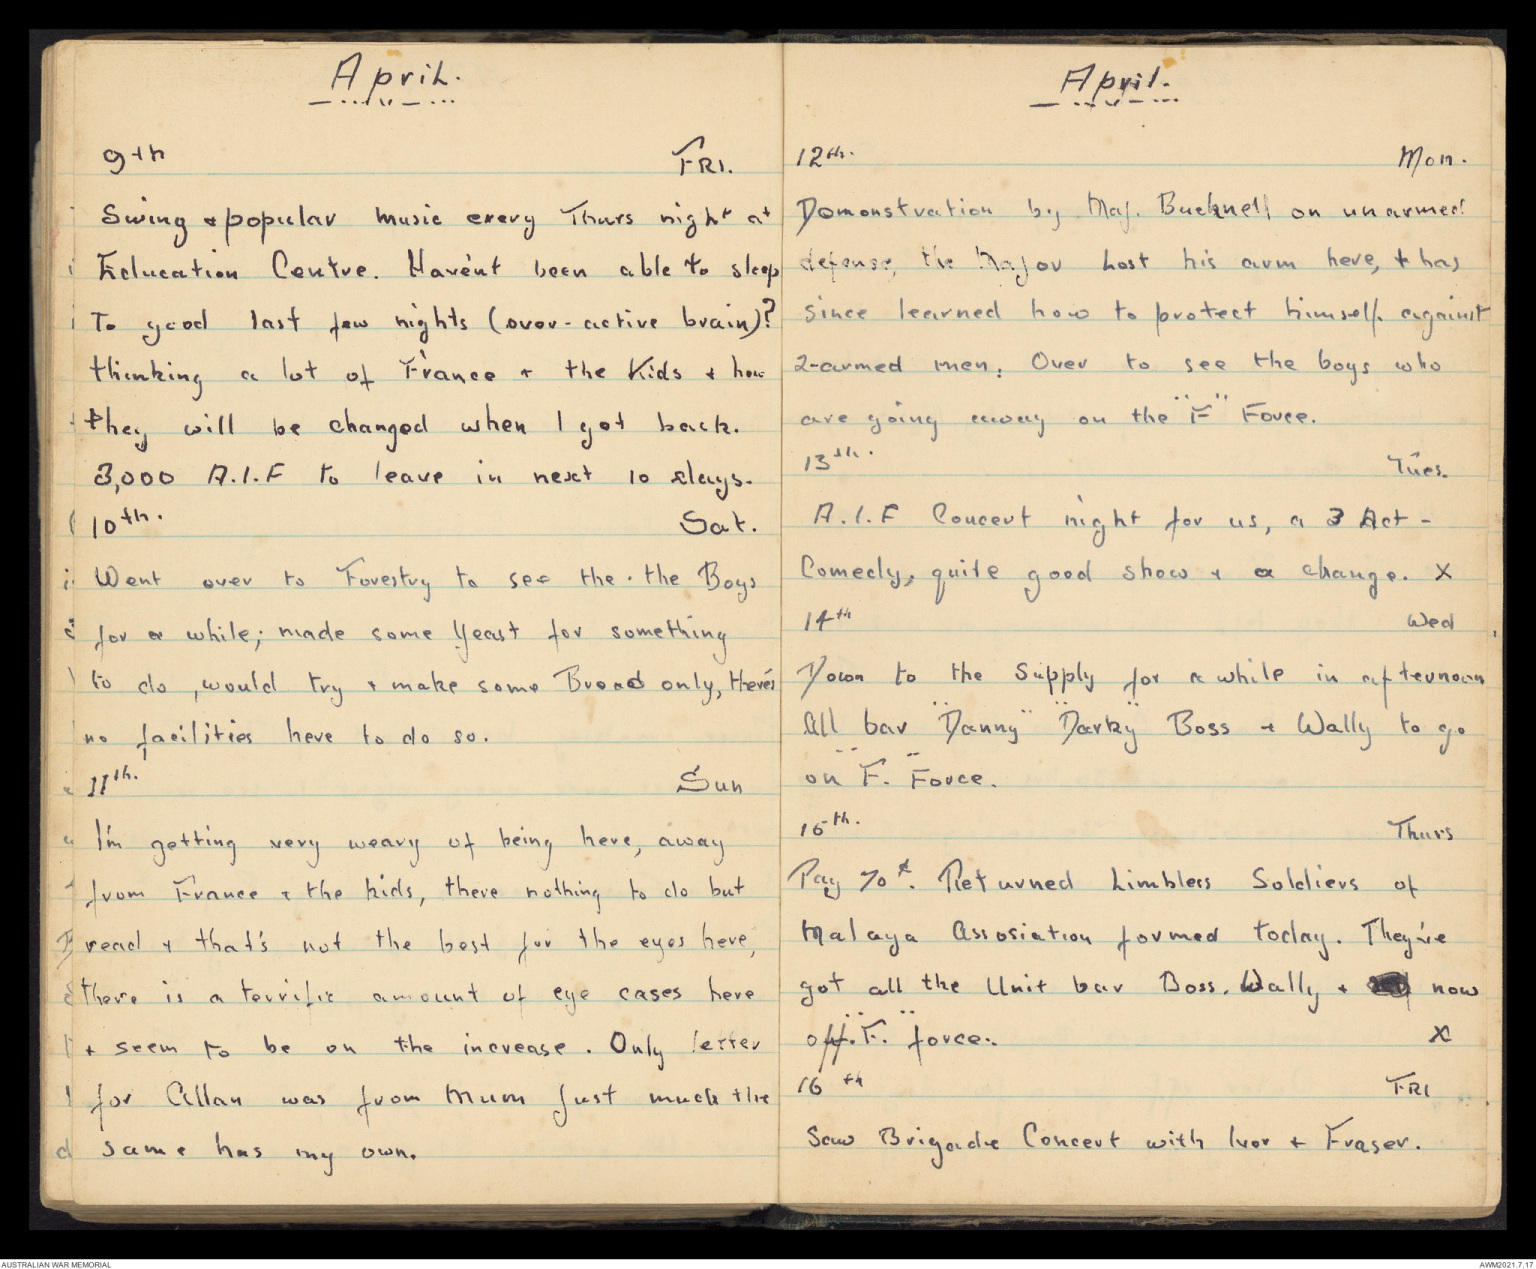 April.
9th FRI.
Swing & popular music every Thurs night at
Education Centre. Haven't been able to sleep
To good last few nights (over-active brain)?
thinking a lot of France & the Kids & how
they will be changed when I got back.
3,000 A.I.F to leave in next 10 days.
10th. Sat.
Went over to Forestry to see the. the Boys
for a while; made some Yeast for something
to do, would try & make some Bread only, there's
no facilities here to do so.
11th. Sun
I'm getting very weary of being here, away
from France & the kids, there nothing to do but
read & that's not the best for the eyes here,
there is a terrific amount of eye cases here
& seem to be on the increase. Only letter
for Allan was from Mum Just much the
same has my own.
April.
12th. Mon.
Demonstration by Maj. Bucknell on unarmed
defense, the Major lost his arm here, & has
since learned how to protect himself against
2-armed men. Over to see the boys who
are going away on the "F" Force.
13th. Tues.
A.I.F Concert night for us, a 3 Act -
Comedy, quite good show & a change. X
14th Wed
Down to the Supply for a while in afternoon
All bar "Danny" "Darky" Boss & Wally to go
on "F. Force.
15th. Thurs
Pay 70¢. Returned Limbless Soldiers of
Malaya Assosiation formed today. They've
got all the Unit bar Boss, Wally & now
off "F." force. X
16th FRI
Saw Brigade Concert with Ivor & Fraser.
AUSTRALIAN WAR MEMORIAL
AWM2021.7.17